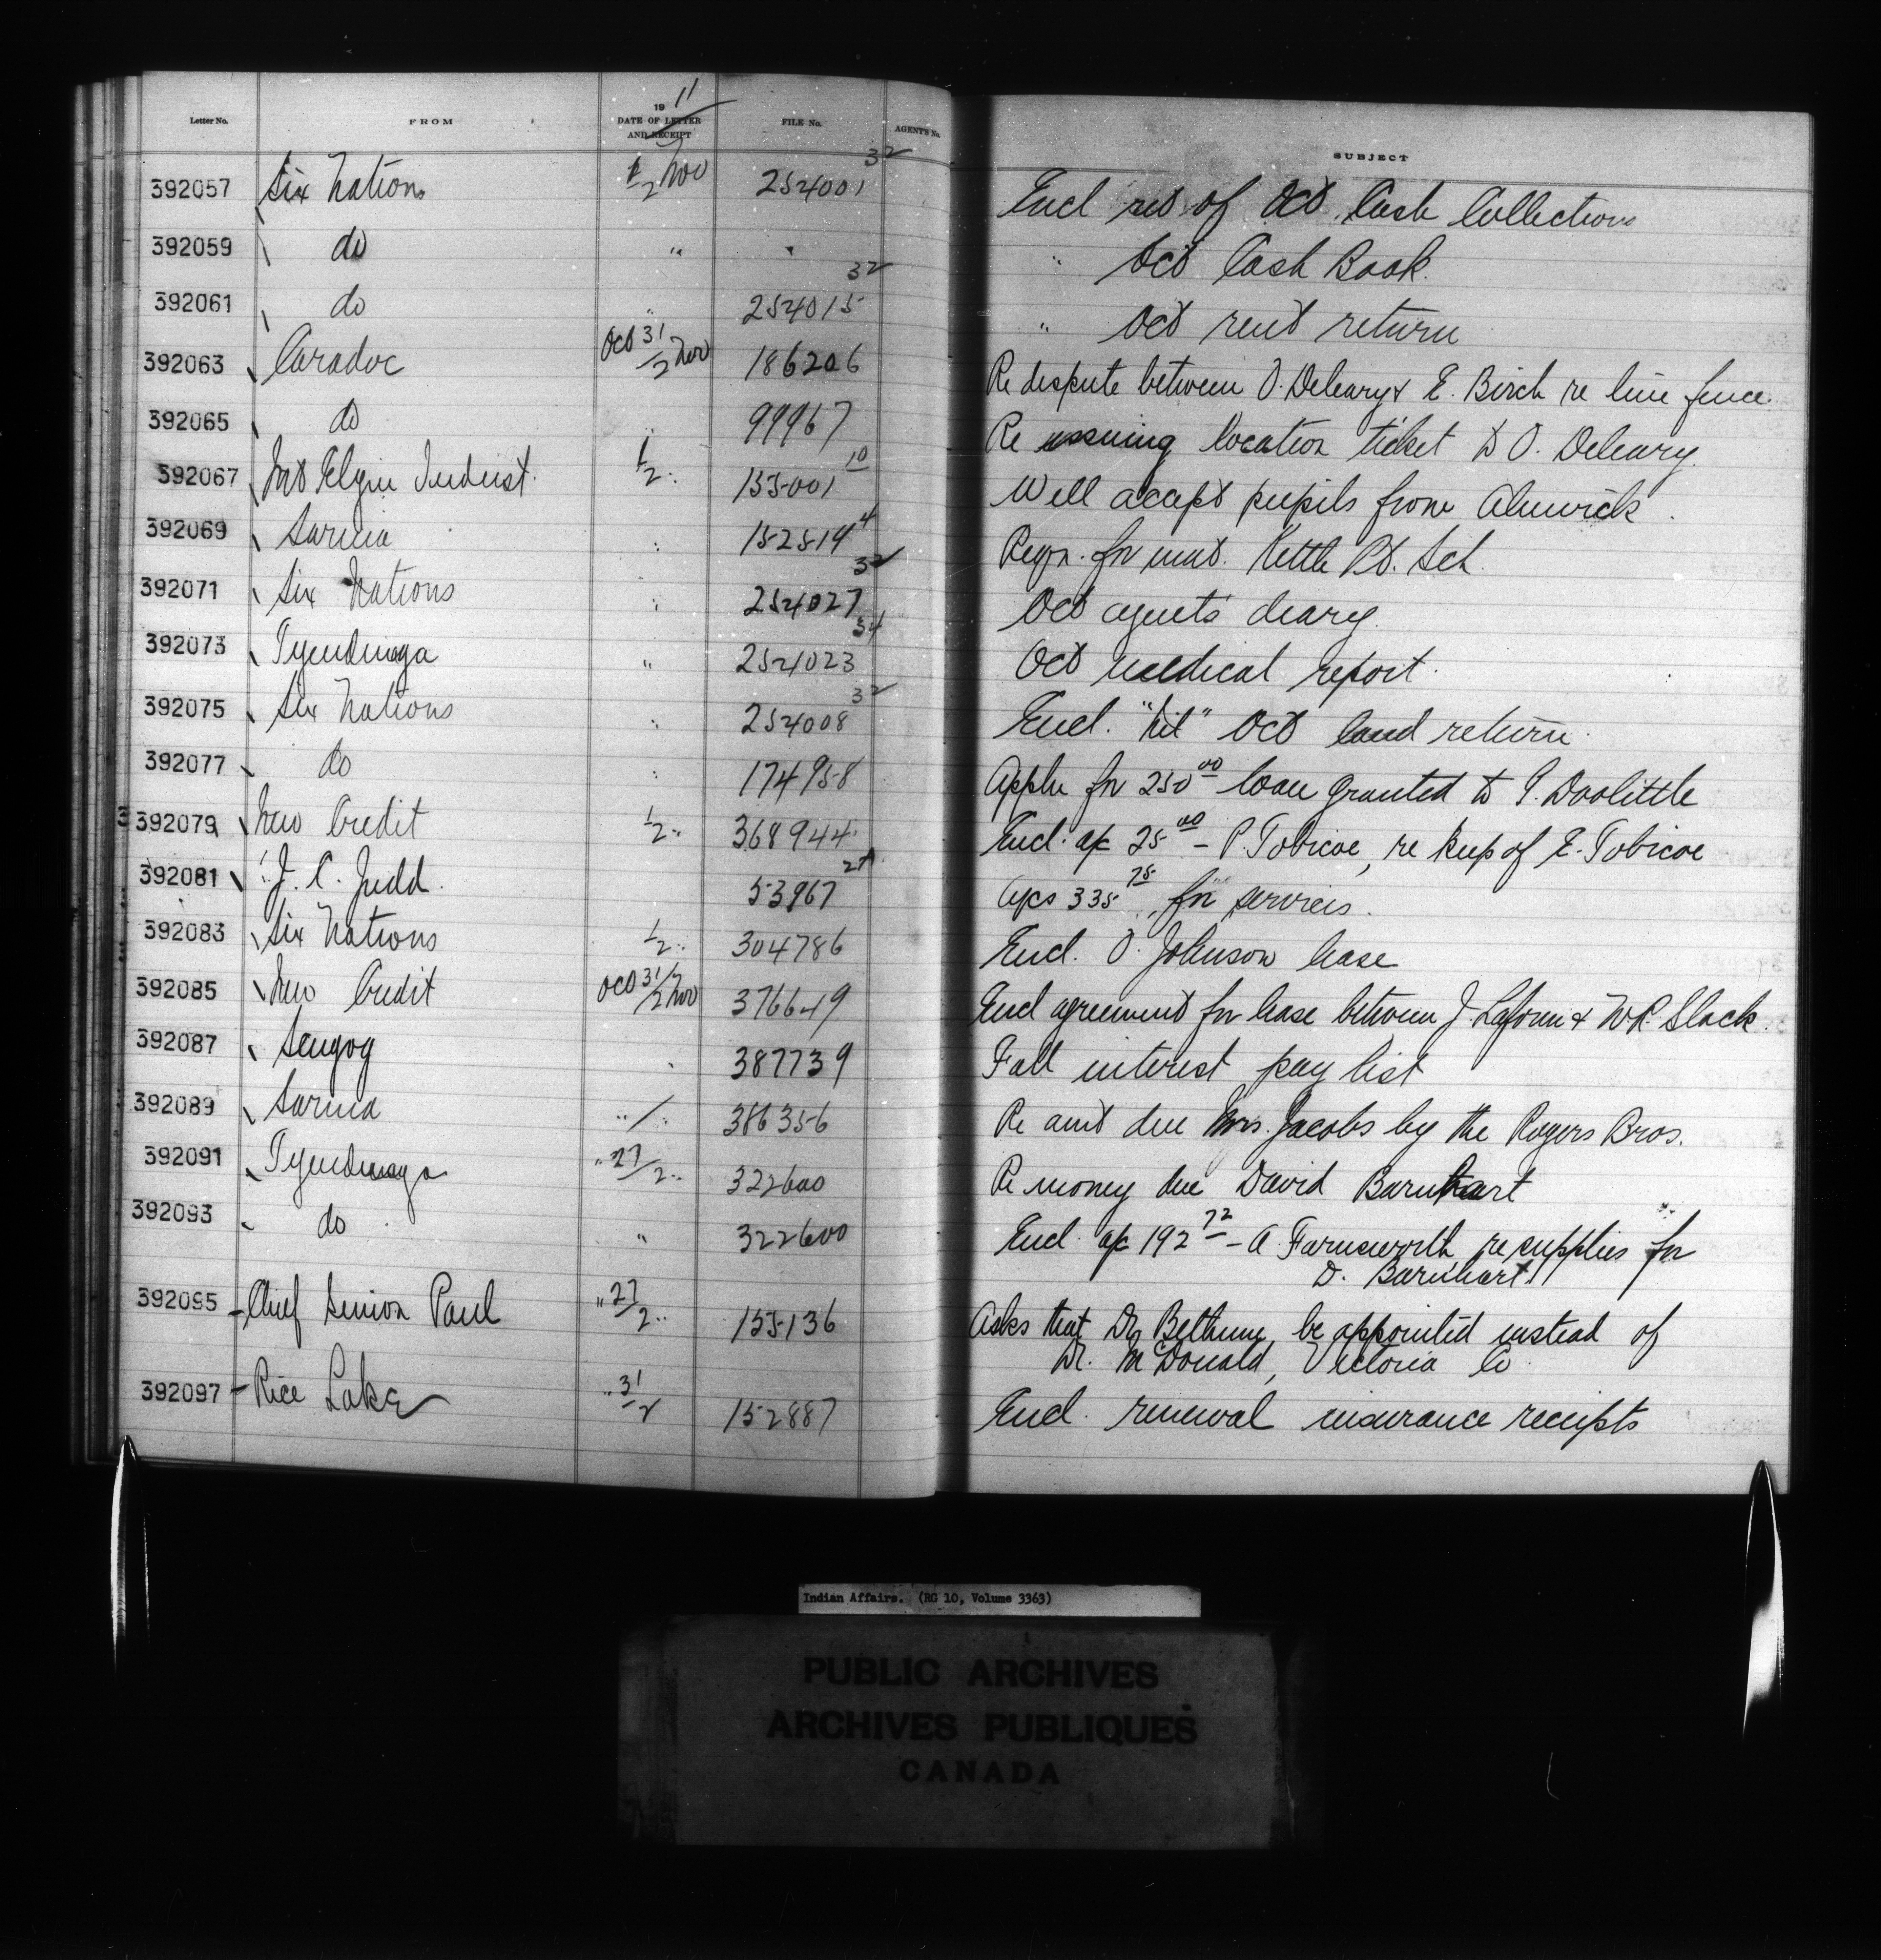 Letter No. FROM 19 11 DATE OF LETTER AND RECEIPT FILE No. AGENT'S No. SUBJECT
392057 Six Nations 1/2 Nov 254001 32 Encl ret of Oct Cash Collections
392059 do " " " Oct Cash Book.
392061 do " 254015 32 " Oct rent return
392063 Caradoc Oct 31/2 Nov 186206 Re dispute between O. Deleary & E. Birch re line fence.
392065 do " 99967 Re issuing location ticket to O. Deleary.
392067 Mt Elgin Indust. 1/2 " 155001 10 Will accept pupils from Alnwick.
392069 Sarnia " 152514 4 Reqn. for mat. Kettle Pt. Sch.
392071 Six Nations " 254027 32 Oct agents diary.
392073 Tyendinaga " 254023 34 Oct medical report.
392075 Six Nations " 254008 32 Encl. "Nil" Oct land return.
392077 do " 174958 Appln for 250 00 loan granted to G. Doolittle
392079 New Credit 1/2 " 368944 Encl. a/c 25 00 - P. Tobicoe, re keep of E. Tobicoe
392081 J. C. Judd. 53967 a/cs 335 75 for services.
392083 Six Nations 1/2 " 304786 Encl. O. Johnson lease
392085 New Credit Oct 31/2 Nov 376649 Encl agreement for lease between J. Laforme & W.R. Slack.
392087 Scugog " 387739 Fall interest pay list
392089 Sarnia " / " 386356 Re amt due Mrs. Jacobs by the Rogers Bros.
392091 Tyendinaga " 27/2 " 322600 Re money due David Barnhart
392093 do " 322600 Encl. a/c 192 72 - A. Farnsworth re supplies for
D. Barnhart
392095 Chief Simon Paul " 27/2 " 155136 Asks that Dr. Bethune be appointed instead of
Dr. McDonald, Victoria Co
392097 Rice Lake " 31/2 152887 Encl. renewal insurance receipts
Indian Affairs. (RG 10, Volume 3363)
PUBLIC ARCHIVES
ARCHIVES PUBLIQUES
CANADA